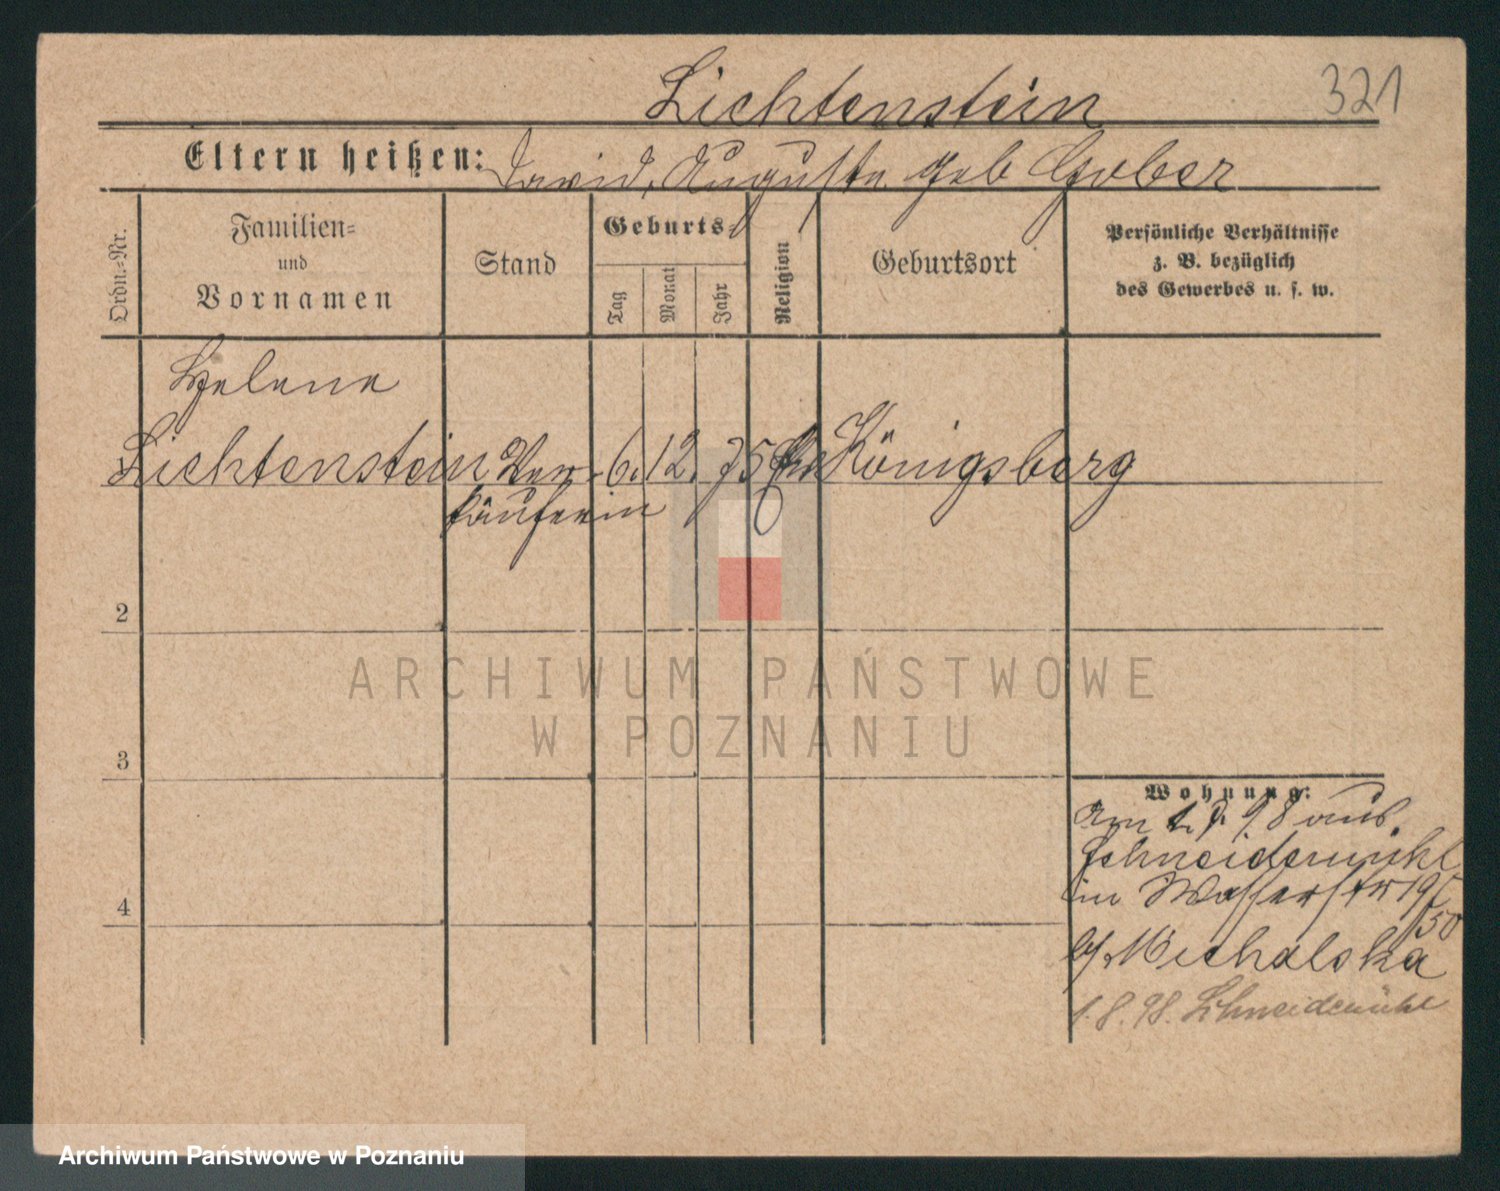 321
Lichtenstein
Eltern heißen: David, Auguste geb Gober
Ordn.-Nr.
Familien-
und
Vornamen
Stand
Geburts
Tag
Monat
Jahr
Religion
Geburtsort
Persönliche Verhältnisse
z. B. bezüglich
des Gewerbes u. s. w.
Helene
Lichtenstein Ver- 6. 12. 75 Königsberg
käuferin
2
3
4
Wohnung:
am 1. 7. 98 aus
Schneidemühl
in Wasserstr 19/
50
b/ Michalska
1.8.98. Schneidemühl
ARCHIWUM PAŃSTWOWE
W POZNANIU
Archiwum Państwowe w Poznaniu